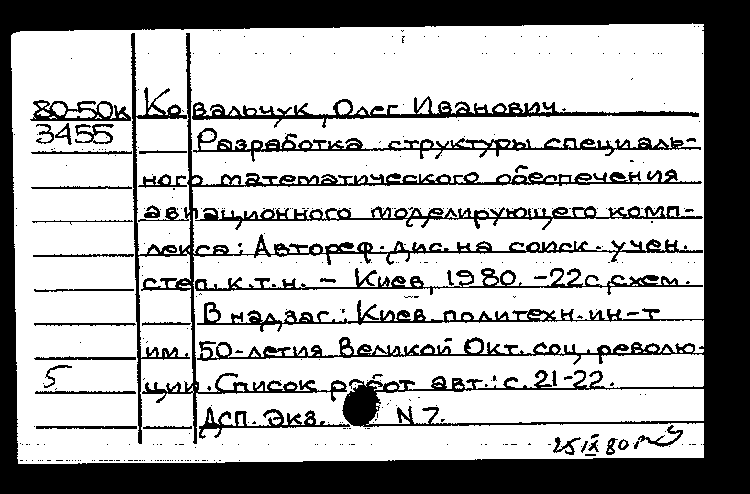 80-50к Ковальчук, Олег Иванович.
3455 Разработка структуры специаль-
ного математического обеспечения
авиационного моделирующего комп-
лекса: Автореф. дис. на соиск. учен.
степ. к.т.н. – Киев, 1980. –22с, схем.
В надзаг.: Киев. политехн. ин-т
им. 50-летия Великой Окт. соц. револю-
5 ции. Список работ авт.: с. 21-22.
Дсп. Экз. N 7.
25 IX 80